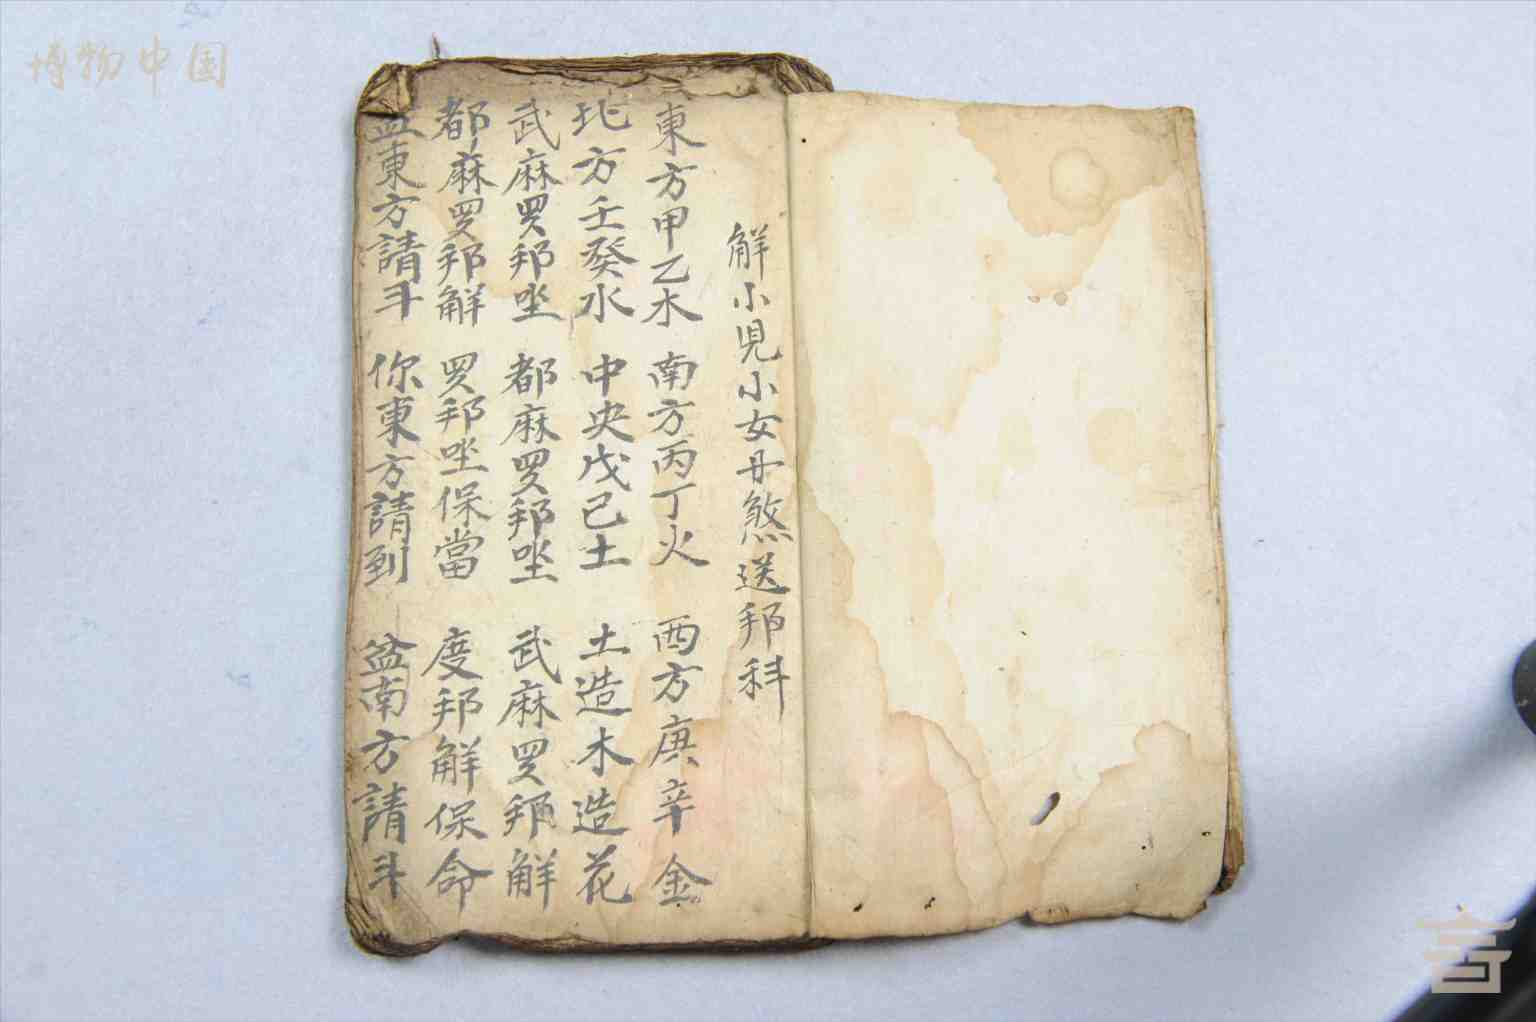 博物中国
解小児小女丹煞送邦科
東方甲乙木 南方丙丁火 西方庚辛金
北方壬癸水 中央戊己土 土造木造花
武麻罗邦坐 都麻罗邦坐 武麻罗邦解
都麻罗邦解 罗邦坐保當 度邦解保命
盆東方請斗 你東方請到 盆南方請斗